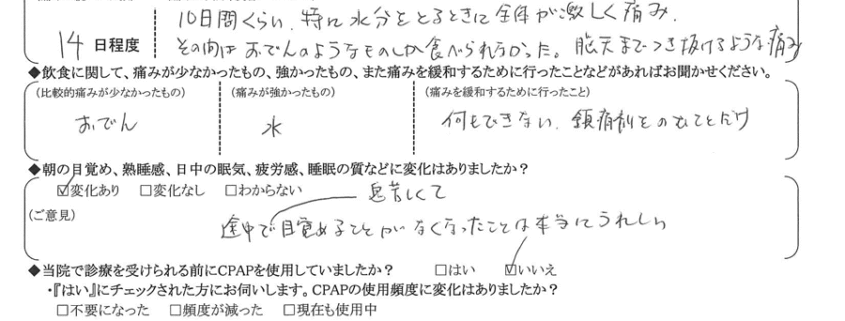 10日間くらい、特に水分をとるときに全体が激しく痛み、
14 日程度
その間はおでんのようなものしか食べられなかった。脳天までつき抜けるような痛み
◆飲食に関して、痛みが少なかったもの、強かったもの、また痛みを緩和するために行ったことなどがあればお聞かせください。
(比較的痛みが少なかったもの) (痛みが強かったもの) (痛みを緩和するために行ったこと)
おでん 水 何もできない、鎮痛剤をのむことだけ
◆朝の目覚め、熟睡感、日中の眠気、疲労感、睡眠の質などに変化はありましたか?
☑変化あり □変化なし □わからない
息苦しくて
(ご意見)
途中で目覚めることがなくなったことは本当にうれしい
◆当院で診療を受けられる前にCPAPを使用していましたか? □はい ☑いいえ
・『はい』にチェックされた方にお伺いします。CPAPの使用頻度に変化はありましたか?
□不要になった □頻度が減った □現在も使用中